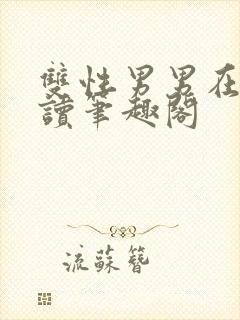 雙性男男在
讀筆趣閣
流蘇簪